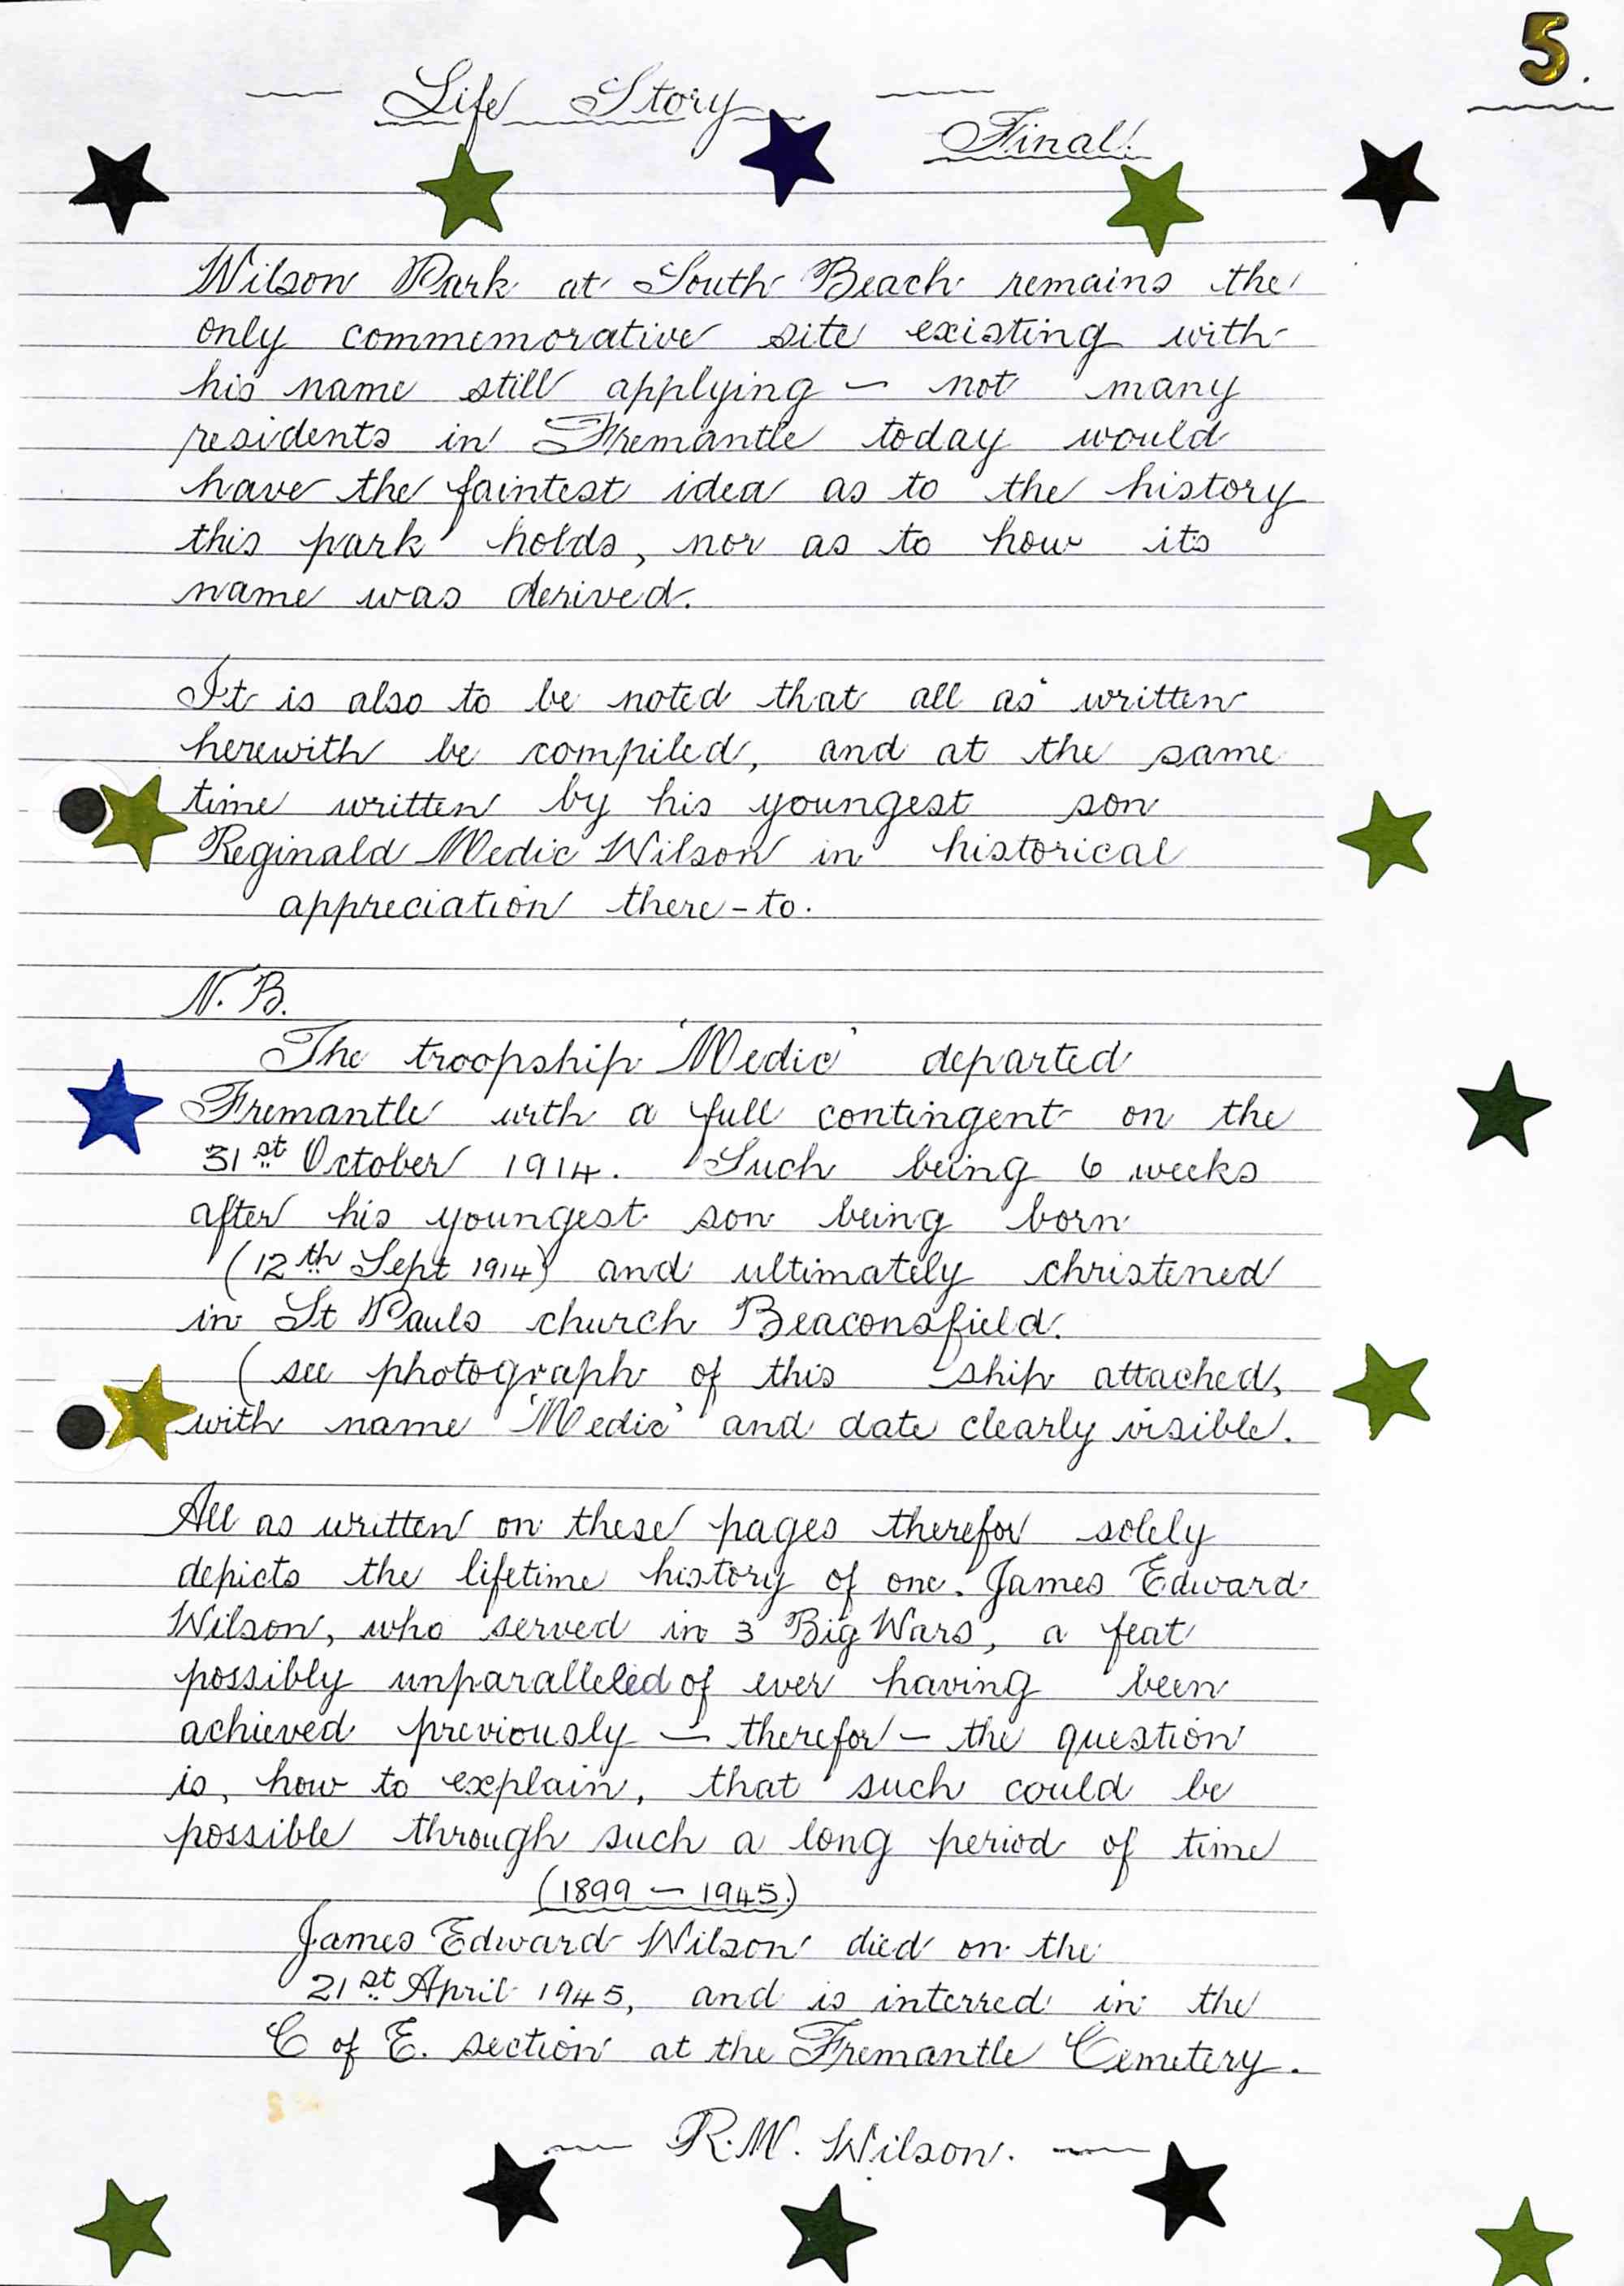 5.
— Life Story —
Final!
Wilson Park at South Beach remains the
only commemorative site existing with
his name still applying — not many
residents in Fremantle today would
have the faintest idea as to the history
this park holds, nor as to how its
name was derived.
It is also to be noted that all as written
herewith be compiled, and at the same
time written by his youngest son
Reginald Medic Wilson in historical
appreciation there-to.
N.B.
The troopship 'Medic' departed
Fremantle with a full contingent on the
31st October 1914. Such being 6 weeks
after his youngest son being born
(12th Sept 1914) and ultimately christened
in St Pauls church Beaconsfield.
(see photograph of this ship attached,
with name 'Medic' and date clearly visible.
All as written on these pages therefor solely
depicts the lifetime history of one. James Edward
Wilson, who served in 3 Big Wars, a feat
possibly unparalleled of ever having been
achieved previously — therefor — the question
is, how to explain, that such could be
possible through such a long period of time
(1899 — 1945)
James Edward Wilson died on the
21st April 1945, and is interred in the
C of E. section at the Fremantle Cemetery.
— R.M. Wilson. —